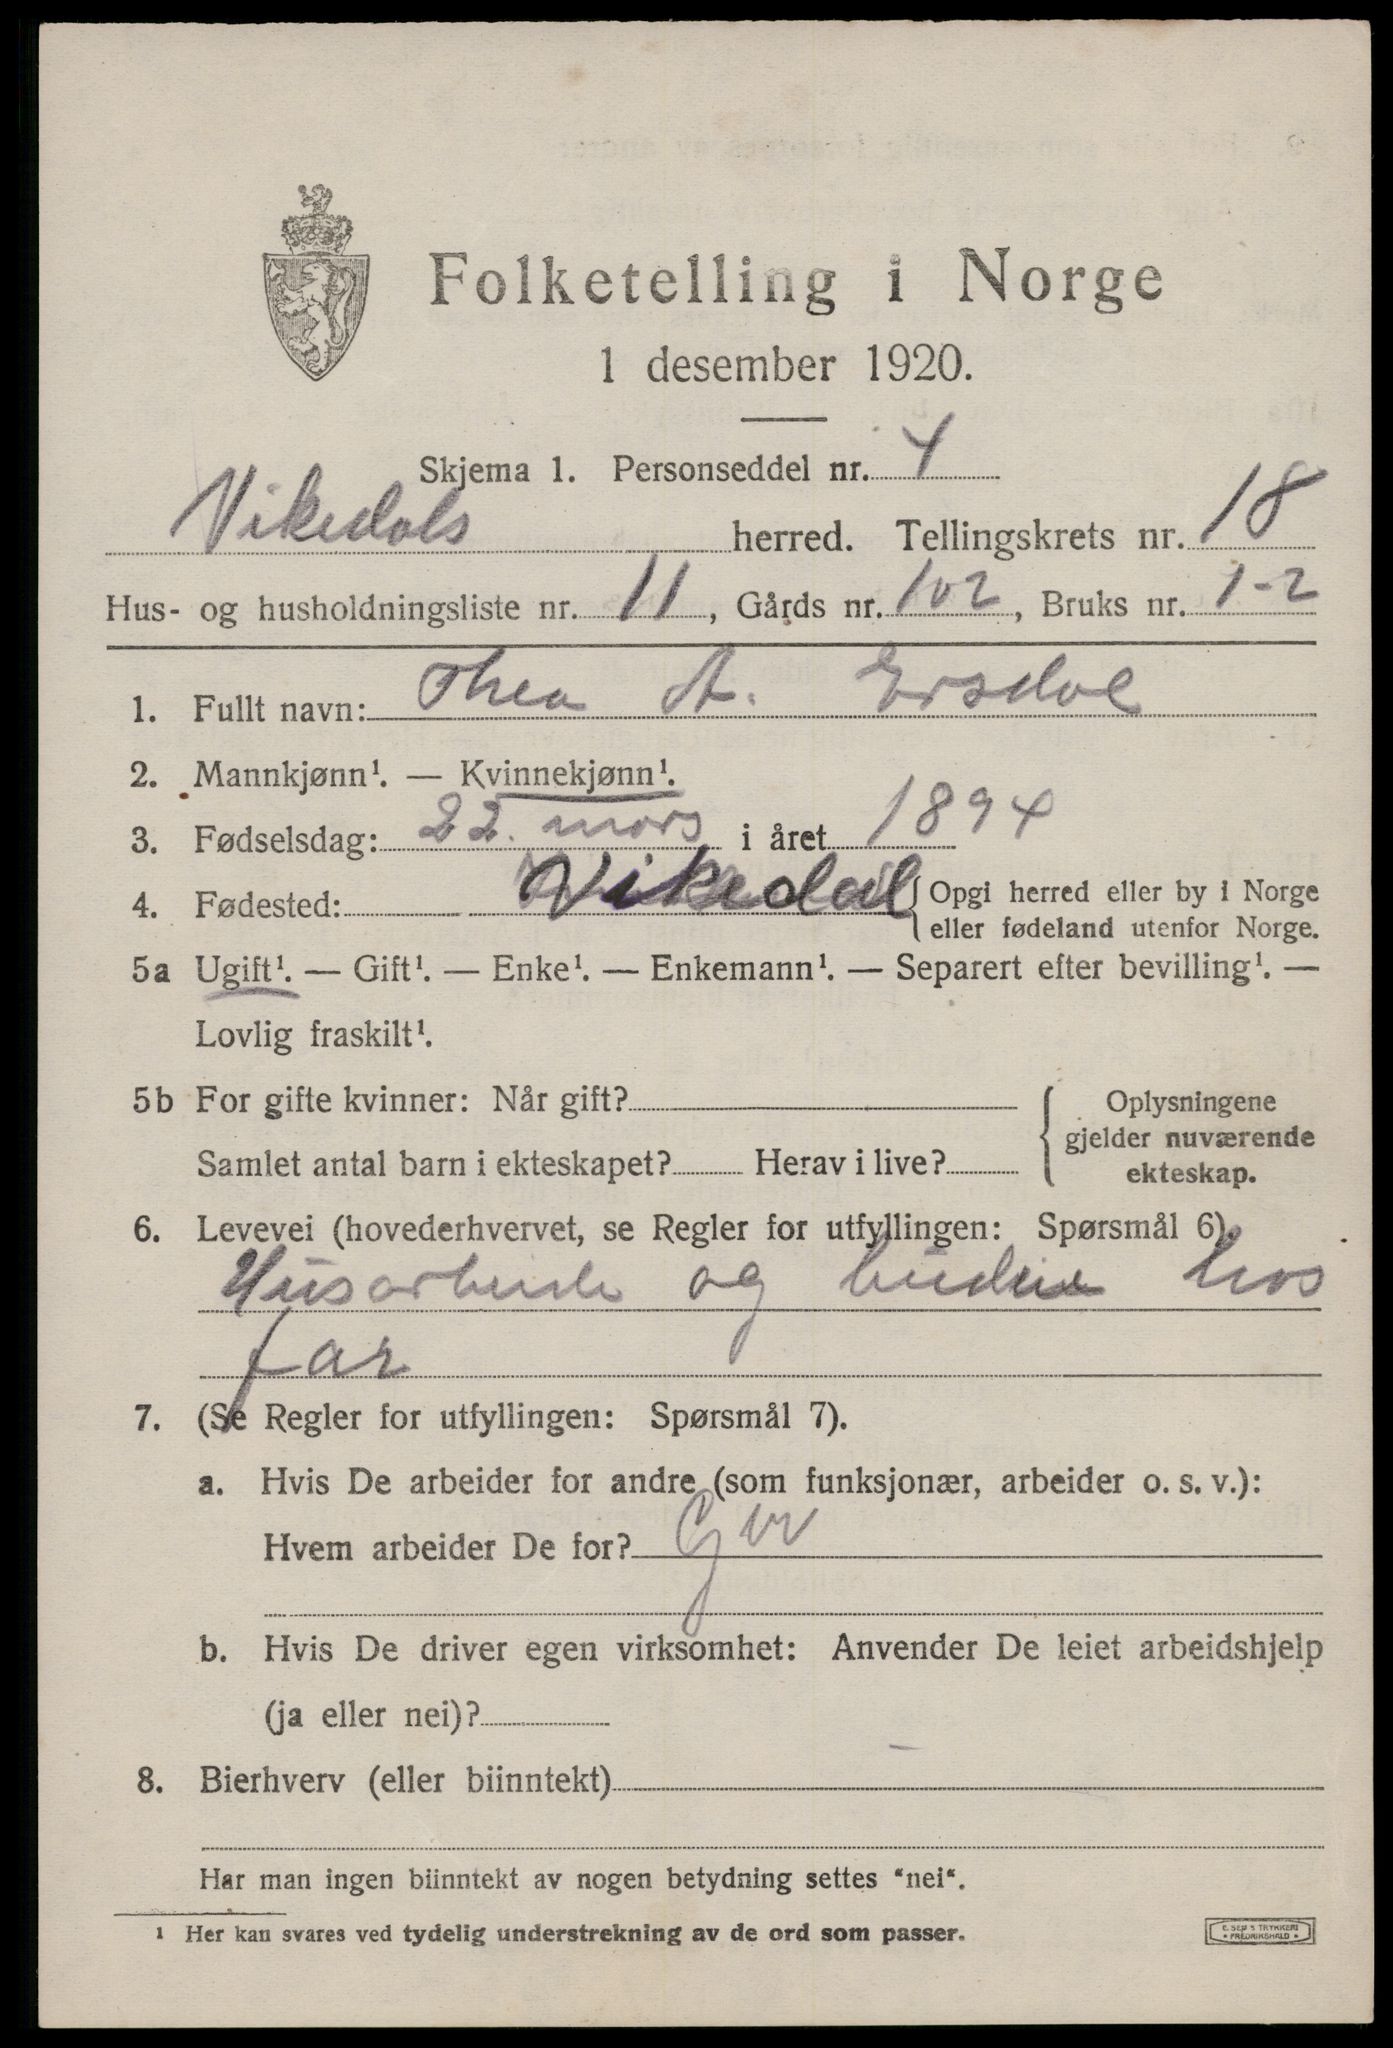 Folketelling i Norge
1 desember 1920.
Skjema 1. Personseddel nr. 4
Vikedals herred. Tellingskrets nr. 18
Hus- og husholdningsliste nr. 11, Gårds nr. 102, Bruks nr. 1-2
1. Fullt navn: Thea A. Ersdal
2. Mannkjønn¹. — Kvinnekjønn¹.
3. Fødselsdag: 22. mars i året 1894
4. Fødested: Vikedal { Opgi herred eller by i Norge
eller fødeland utenfor Norge.
5a Ugift¹. — Gift¹. — Enke¹. — Enkemann¹. — Separert efter bevilling¹. —
Lovlig fraskilt¹.
5b For gifte kvinner: Når gift? { Oplysningene
gjelder nuværende
Samlet antal barn i ekteskapet? Herav i live?
ekteskap.
6. Levevei (hovederhvervet, se Regler for utfyllingen: Spørsmål 6).
Husarbeide og hos
far
7. (Se Regler for utfyllingen: Spørsmål 7).
a. Hvis De arbeider for andre (som funksjonær, arbeider o. s. v.):
Hvem arbeider De for?
b. Hvis De driver egen virksomhet: Anvender De leiet arbeidshjelp
(ja eller nei)?
8. Bierhverv (eller biinntekt) –
Har man ingen biinntekt av nogen betydning settes "nei".
¹ Her kan svares ved tydelig understrekning av de ord som passer.
FREDRIKSHALD